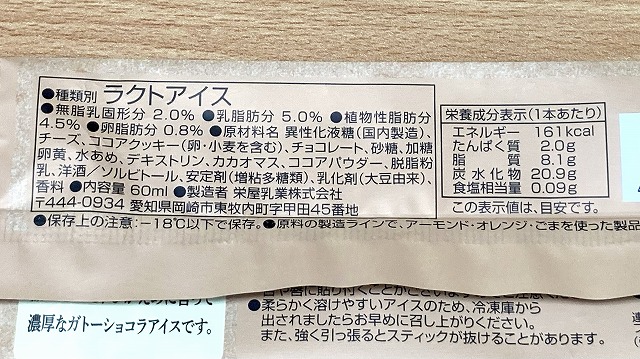 ●種類別 ラクトアイス
●無脂乳固形分 2.0% ●乳脂肪分 5.0% ●植物性脂肪分
4.5% ●卵脂肪分 0.8% ●原材料名 異性化液糖(国内製造)、
チーズ、ココアクッキー(卵・小麦を含む)、チョコレート、砂糖、加糖
卵黄、水あめ、デキストリン、カカオマス、ココアパウダー、脱脂粉
乳、洋酒/ソルビトール、安定剤(増粘多糖類)、乳化剤(大豆由来)、
香料 ●内容量 60ml ●製造者 栄屋乳業株式会社
〒444-0934 愛知県岡崎市東牧内町字甲田45番地
●保存上の注意:−18℃以下で保存。●原料の製造ラインで、アーモンド・オレンジ・ごまを使った製品
栄養成分表示(1本あたり)
エネルギー 161kcal
たんぱく質 2.0g
脂質 8.1g
炭水化物 20.9g
食塩相当量 0.09g
この表示値は、目安です。
濃厚なガトーショコラアイスです。
●柔らかく溶けやすいアイスのため、冷凍庫から
出されましたらお早めに召し上がりください。
また、強く引っ張るとスティックが抜けることがあります。